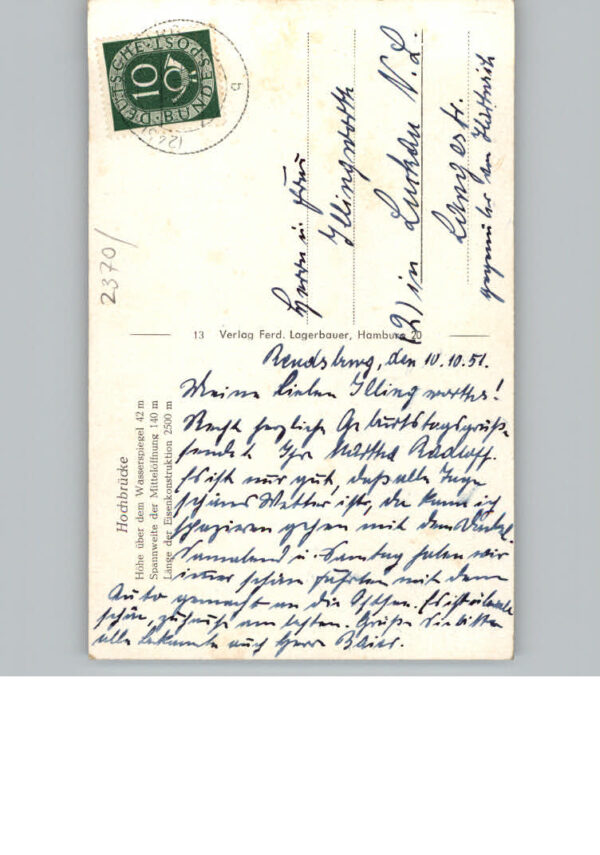 DEUTSCHE·POST
10
BUNDES
(24
a
2370/
Herrn u Frau
Illingworth
(2) in Luckau N. L.
Langestr.
gegenüber von
13 Verlag Ferd. Lagerbauer, Hamburg 20
Hochbrücke
Höhe über dem Wasserspiegel 42 m
Spannweite der Mittelöffnung 140 m
Länge der Eisenkonstruktion 2500 m
Rendsburg, den 10.10.51.
Meine lieben Illingworths!
Recht herzliche Geburtstagsgrüße
sendet Ihr Martha Radloff.
Es ist nur gut, daß alle Tage
schönes Wetter ist, da kann ich
spazieren gehen mit dem
Sonnabend u. Sonntag haben wir
immer schöne Fahrten mit dem
Auto gemacht an die Ostsee. Es ist überall
schön, zuhause am besten. Grüßen Sie bitte
alle Bekannte auch Herrn